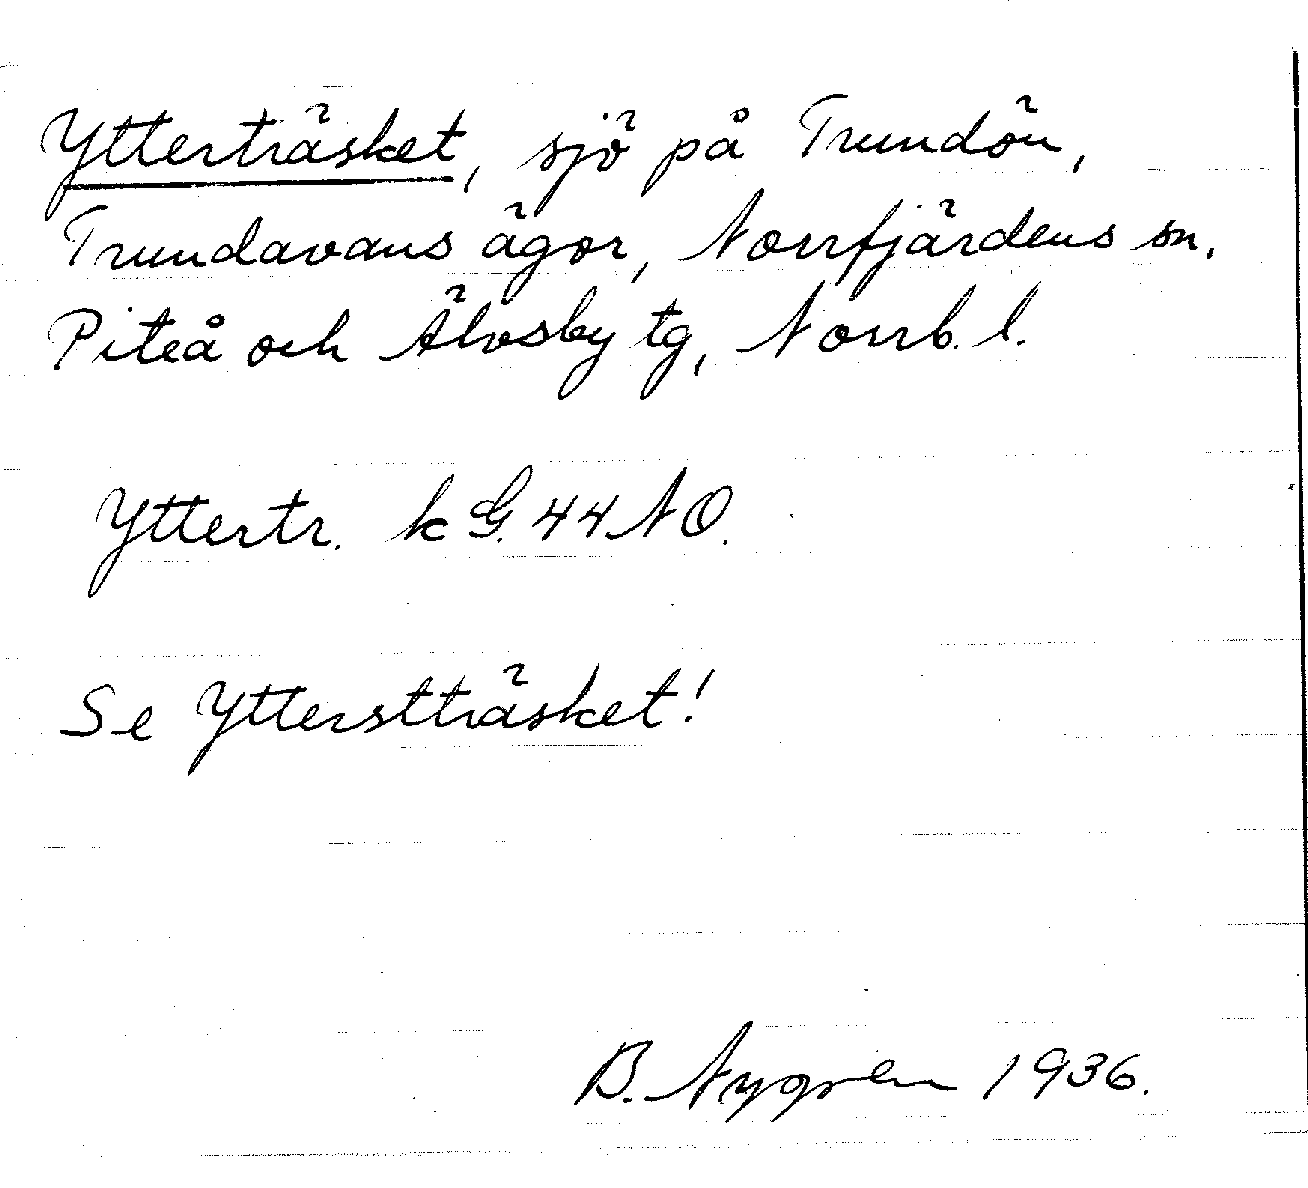 Ytterträsket, sjö på Trundön,
Trundavans ägor, Norrfjärdens sn.
Piteå och Älvsby tg, Norrb. l.
Yttertr. k G. 44 NO.
Se Ytterstträsket!
B. Nygren 1936.